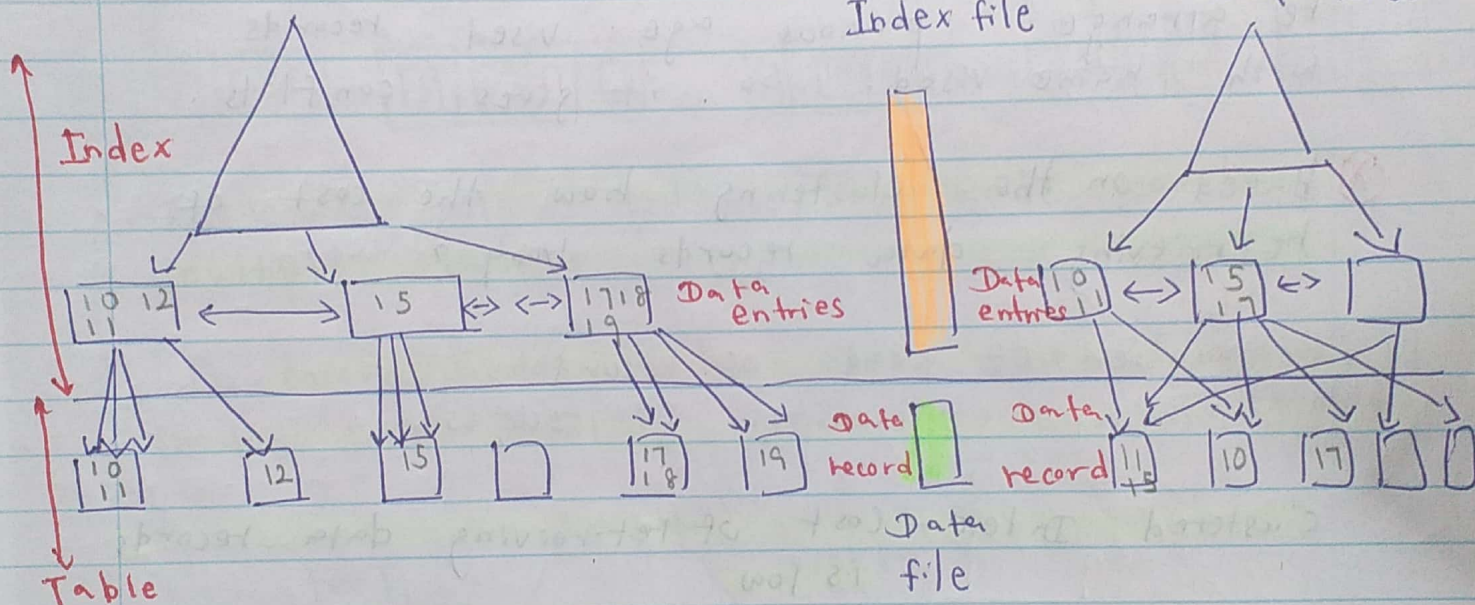 Index file
Index
10 12
11
15
17 18
19
Data
entries
Data
entries
10
11
15
17
10
11
12
15
17
18
19
Data
record
Data
record
11
15
10
17
Data
file
Table